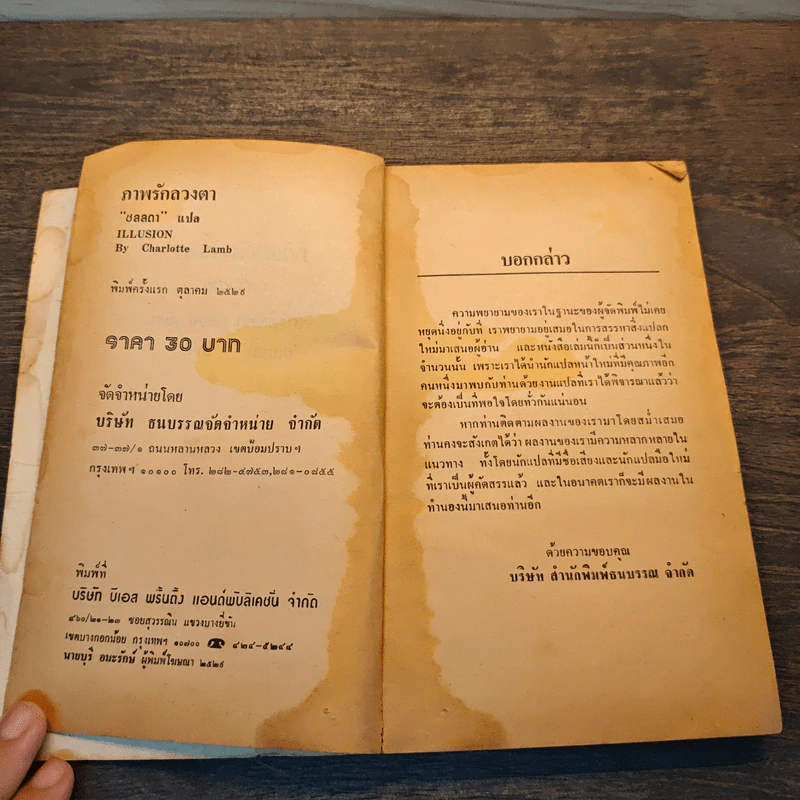 ภาพรักลวงตา
"ชลลดา" แปล
ILLUSION
By Charlotte Lamb
พิมพ์ครั้งแรก ตุลาคม ๒๕๒๙
ราคา 30 บาท
จัดจำหน่ายโดย
บริษัท ธนบรรณจัดจำหน่าย จำกัด
๓๗-๓๗/๑ ถนนหลานหลวง เขตป้อมปราบฯ
กรุงเทพฯ ๑๐๑๐๐ โทร. ๒๘๒-๔๗๕๓,๒๘๑-๐๘๕๕
พิมพ์ที่
บริษัท บีเอส พริ้นติ้ง แอนด์พับลิเคชั่น จำกัด
๔๖๐/๒๑-๒๓ ซอยสุวรรณิน แขวงบางยี่ขัน
เขตบางกอกน้อย กรุงเทพฯ ๑๐๗๐๐ ☎ ๔๒๔-๕๒๔๔
นายบุรี อมะรักษ์ ผู้พิมพ์โฆษณา ๒๕๒๙
บอกกล่าว
ความพยายามของเราในฐานะของผู้จัดพิมพ์ไม่เคย
หยุดนิ่งอยู่กับที่ เราพยายามอยู่เสมอในการสรรหาสิ่งแปลก
ใหม่มาเสนอผู้อ่าน และหนังสือเล่มนี้ก็เป็นส่วนหนึ่งใน
จำนวนนั้น เพราะเราได้นำนักแปลหน้าใหม่ที่มีคุณภาพอีก
คนหนึ่งมาพบกับท่านด้วยงานแปลที่เราได้พิจารณาแล้วว่า
จะต้องเป็นที่พอใจโดยทั่วกันแน่นอน
หากท่านติดตามผลงานของเรามาโดยสม่ำเสมอ
ท่านคงจะสังเกตได้ว่า ผลงานของเรามีความหลากหลายใน
แนวทาง ทั้งโดยนักแปลที่มีชื่อเสียงและนักแปลมือใหม่
ที่เราเป็นผู้คัดสรรแล้ว และในอนาคตเราก็จะมีผลงานใน
ทำนองนี้มาเสนอท่านอีก
ด้วยความขอบคุณ
บริษัท สำนักพิมพ์ธนบรรณ จำกัด